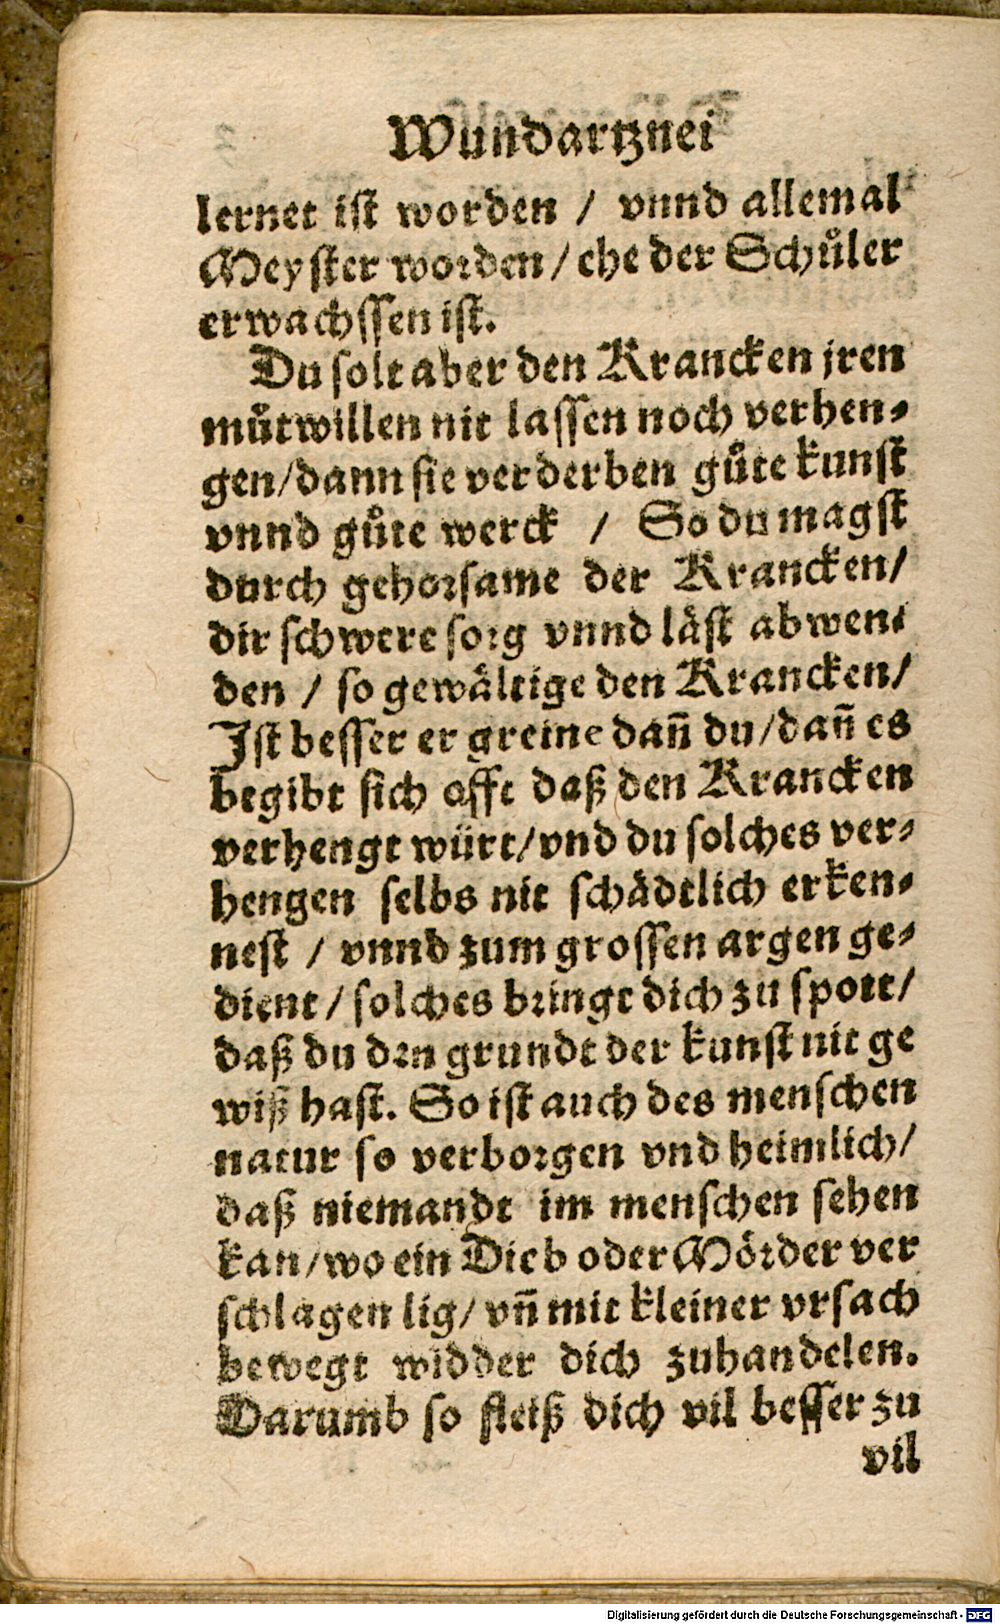 Wundartznei
lernet ist worden / vnnd allemal
Meyster worden / ehe der Schůler
erwachssen ist.
Du solt aber den Krancken jren
můtwillen nit lassen noch verhen⸗
gen / dann sie verderben gůte kunst
vnnd gůte werck / So du magst
durch gehorsame der Krancken /
dir schwere sorg vnnd läst abwen⸗
den / so gewältige den Krancken /
Ist besser er greine dañ du / dañ es
begibt sich offt daß den Krancken
verhengt würt / vnd du solches ver⸗
hengen selbs nit schädtlich erken⸗
nest / vnnd zum grossen argen ge⸗
dient / solches bringt dich zu spott /
daß du den grundt der kunst nit ge
wiß hast. So ist auch des menschen
natur so verborgen vnd heimlich /
daß niemandt im menschen sehen
kan / wo ein Dieb oder Mörder ver
schlagen lig / vñ mit kleiner vrsach
bewegt widder dich zuhandelen.
Darumb so fleiß dich vil besser zu
vil
Digitalisierung gefördert durch die Deutsche Forschungsgemeinschaft - DFG